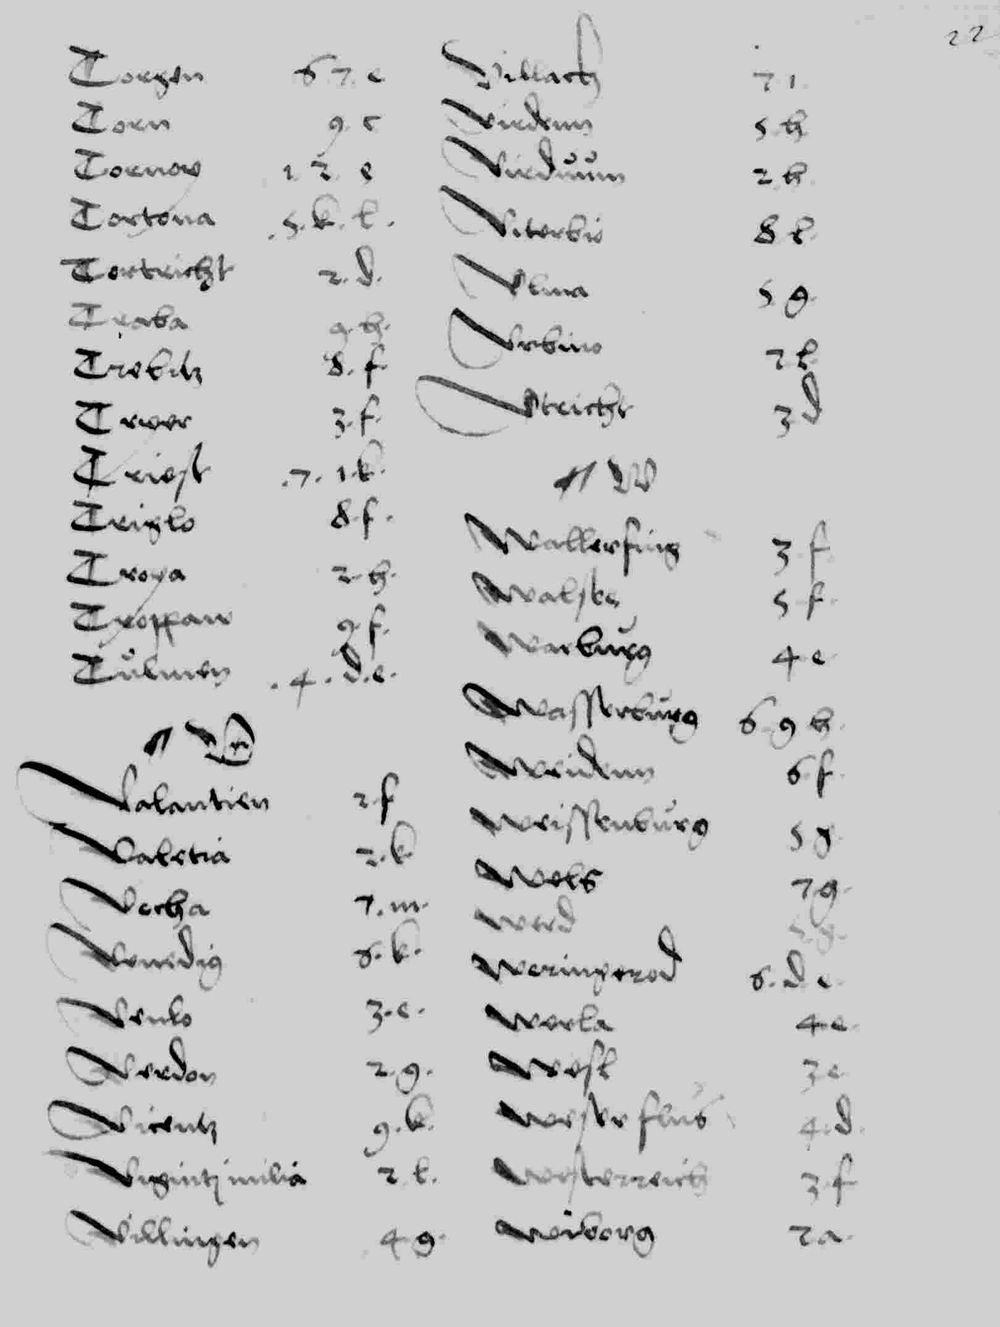 22
Torgen 6 7. e
Torn 9. c
Tornow 1 2. e
Tortona .5. k. l.
Tortricht 2. d.
Traba 9. h.
Trebitz 8. f.
Trier 3. f.
Triest .7. 1. k.
Triglo 8. f.
Troya 2. h.
Troppaw 9. f.
Tůlmen .4. d. e.
V
Valantien 2. f
Valetia 2. k
Vecha 7. m.
Venedig 6. k.
Venlo 3. e.
Verdon 2. g.
Vicentz 9. k.
Vigintzmilia 2. l.
Villingen 4 g.
Villach 7 1.
Virdenn 5. h
Virdůům 2. h.
Viterbio 8 l.
Vlma 5 g.
Vrbino 7 l.
Vtricht 3 d
W
Wallerfing 3. f.
Walske 5. f.
Warburg 4 e.
Wasserburg 6 9 h.
Weidenn 6. f.
Weissenburg 5 g.
Wels 7 g.
Werd 5. g.
Weringerod 6. d. e.
Werla 4 e.
Wesl 3 e.
Weser flus 4. d.
Westerreich 3. f
Wiborg 7 a.